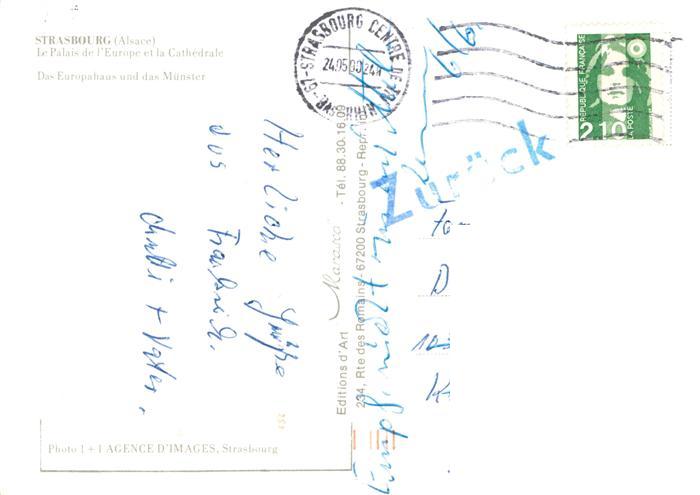 STRASBOURG (Alsace)
Le Palais de l'Europe et la Cathédrale
Das Europahaus und das Münster
STRASBOURG CENTRE DE TRI
24.05.90 24H
RÉPUBLIQUE FRANÇAISE
2,10
LA POSTE
Zurück
Herzliche Grüße
aus
Frankreich.
+ Vater.
Editions d'Art Marasco - Tél. 88.30.16.09
234, Rte des Romains - 67200 Strasbourg - Repr.
Photo 1 + 1 AGENCE D'IMAGES, Strasbourg